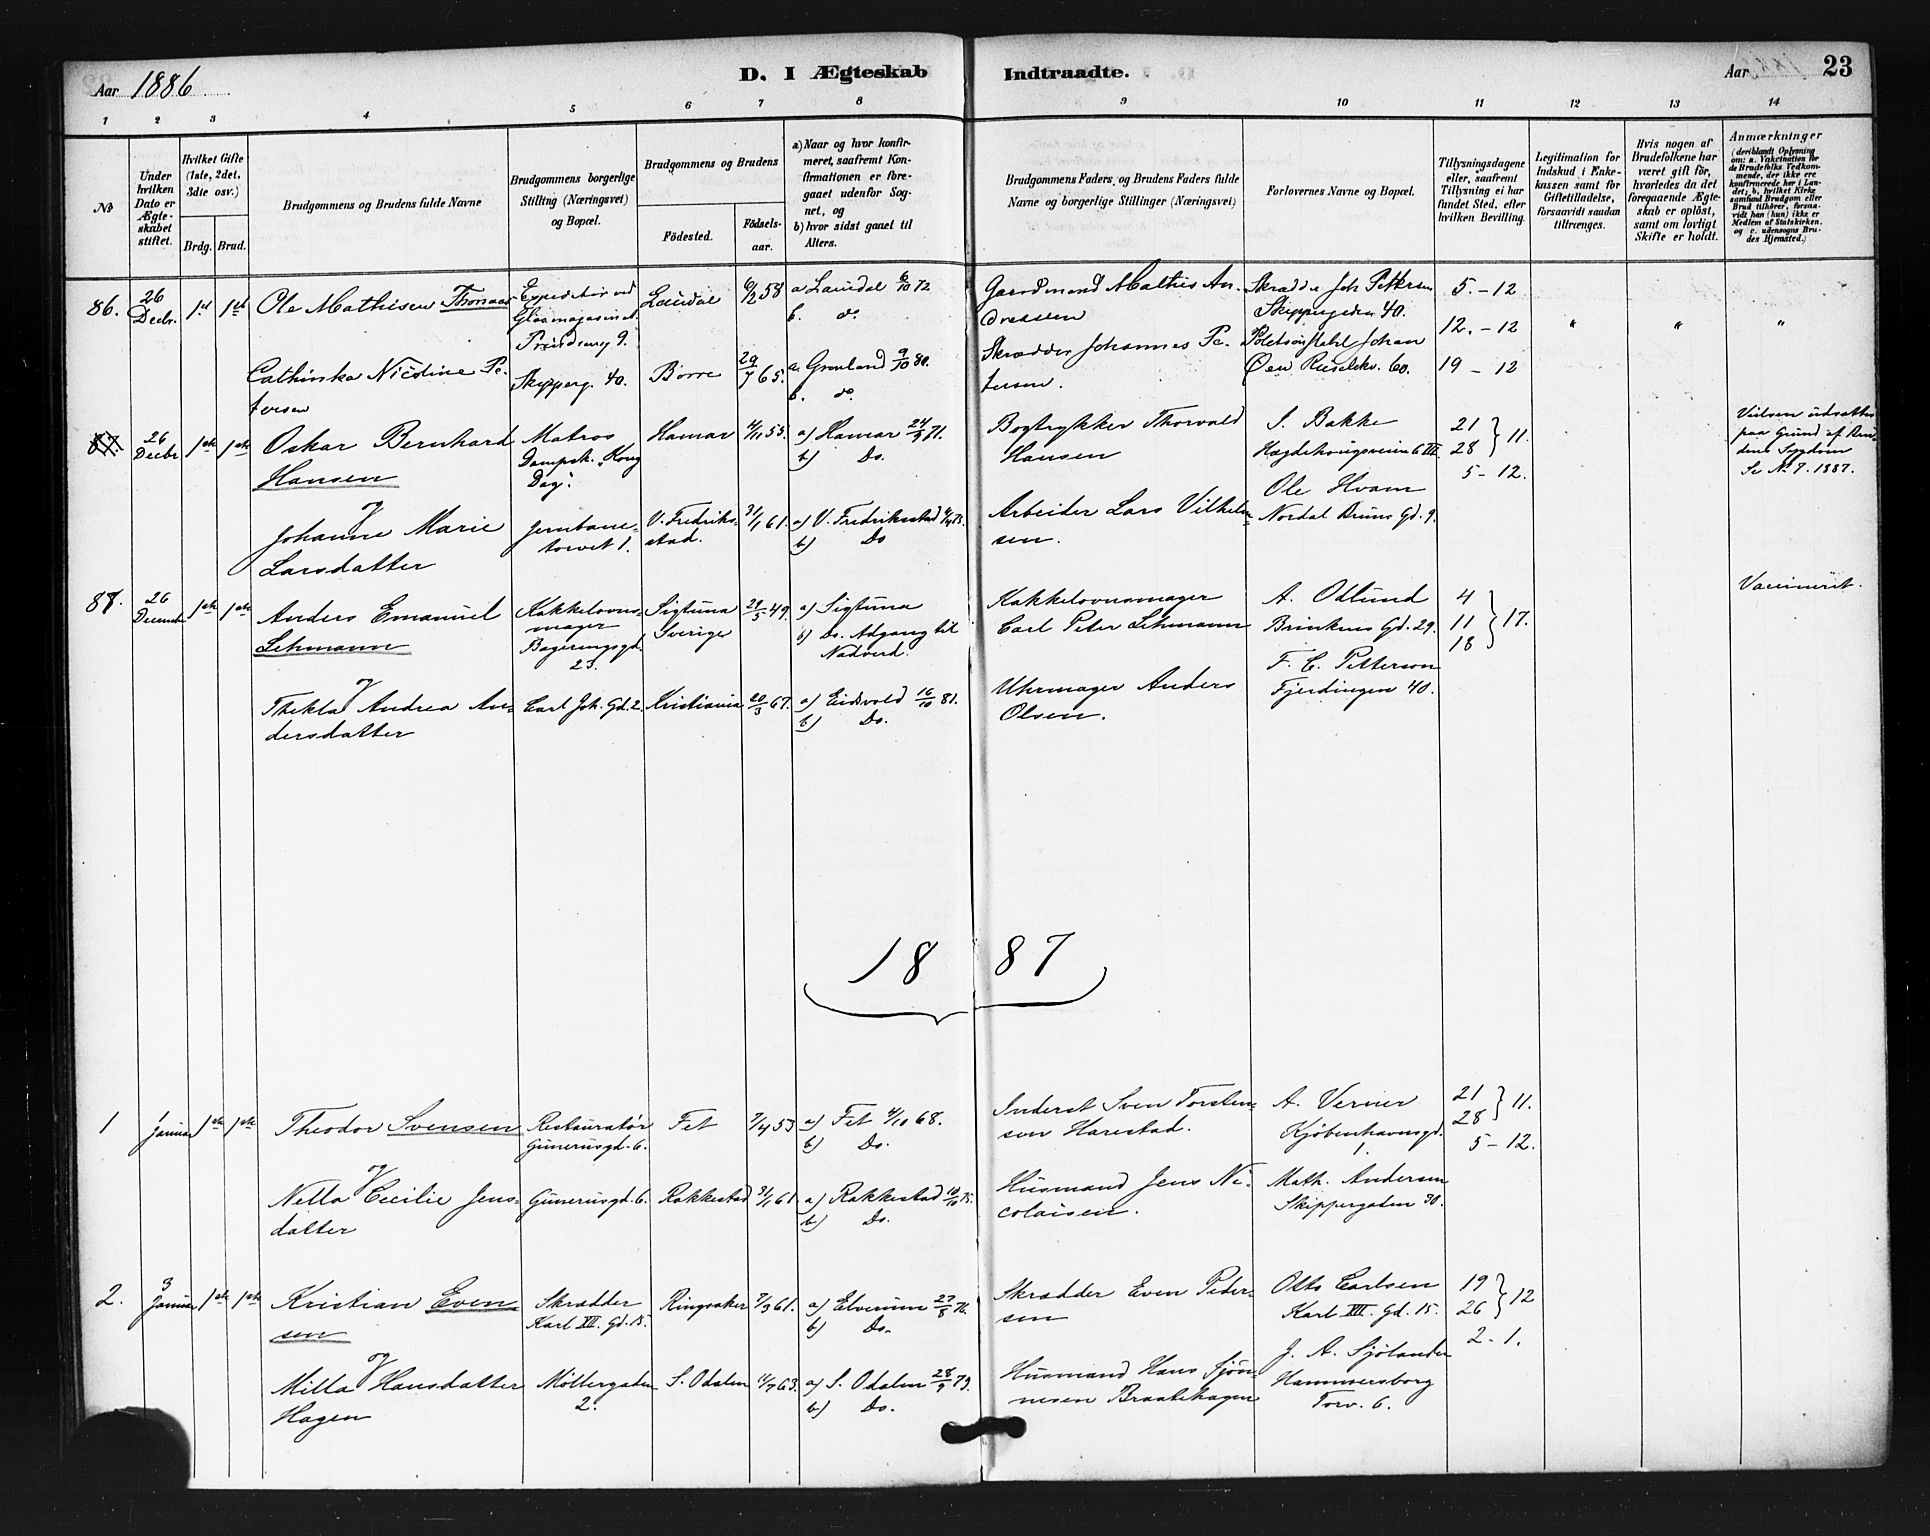 Aar 1886.
D. I Ægteskab
Indtraadte.
Aar
23
1 2 3 4 5 6 7 8 9 10 11 12 13 14
№
Under hvilken Dato er Ægteskabet stiftet.
Hvilket Gifte (1ste, 2det, 3die osv.)
Brdg. Brud.
Brudgommens og Brudens fulde Navne
Brudgommens borgerlige Stilling (Næringsvei) og Bopæl.
Brudgommens og Brudens
Födested.
Födselsaar.
a) Naar og hvor konfirmeret, saafremt Konfirmationen er foregaaet udenfor Sognet, og
b) hvor sidst gaaet til Alters.
Brudgommens Faders og Brudens Faders fulde Navne og borgerlige Stillinger (Næringsvei)
Forlovernes Navne og Bopæl.
Tillysningsdagene eller, saafremt Tillysning ei har fundet Sted, efter hvilken Bevilling.
Legitimation for Indskud i Enkekassen samt for Giftetilladelse, forsaavidt saadan tiltrænges.
Hvis nogen af Brudefolkene har været gift før, hvorledes da det foregaaende Ægteskab er opløst, samt om lovligt Skifte er holdt.
Anmærkninger
(deriblandt Oplysning om: a. Vakcination for de Brudefolks Vedkommende, der ikke ere konfirmerede her i Landet; b, hvilket Kirkesamfund Brudgom eller Brud tilhører, forsaavidt han (hun) ikke er Medlem af Statskirken, og c. udensogns Brudes Hjemsted.)
86. 26 Decbr. 1st 1ste Ole Mathisen Thonaas
Expeditør ved Glasmagasinet Prindsensg 9.
Laurdal 6/12 58 a Laurdal 6/10 72
b. do.
Gaardmand Mathis Andressen
Skrædd. Joh Pettersen
Skippergaden 40.
5.-12
12.-12
19-12
" " "
Cathinka Nicoline Petersen
Skipperg. 40. Borre 29/7 65. a. Grønland 9/10 80.
b. do.
Skrædder Johannes Petersen.
Johan Øen
60.
87. 26 Decbr 1ste 1ste Oskar Bernhard Hansen
Matros Dampsk. "Kong Dag".
Hamar 4/11 55. a) Hamar 24/9 71.
b) Do.
Bogtrykker Thorvald Hansen
S. Bakke
Hægdehaugsveien 6 III.
21
28 } 11.
5-12.
Vielsen udsattes paa Grund af Brudens Sygdom
Se N. 7. 1887.
og
Johanne Marie Larsdatter
Jernbanetorvet 1.
V. Fredrikstad. 31/1 61. a) V. Fredriksstad
b) Do
Arbeider Lars Vilhelmsen.
Ole Hvam
Nordal Bruns Gd. 9.
87. 26 December 1ste 1ste Anders Emanuel Lehmann
Kakkelovnsmager
23.
Sigtuna Sverige 29/5 49. a) Sigtuna
b) Do. Adgang til Nadverd.
Kakkelovnsmager
Carl Peter Lehmann
A. Odlund
Brinkens Gd. 29.
4
11 } 17.
18
Vaccineret.
og
Thekla Andrea Andersdatter
Carl Joh. Gd. 2. Kristiania 20/3 67. a) Eidsvold 16/10 81.
b) Do.
Uhrmager Anders Olsen.
F. C. Petterson
Fjerdingen 40.
1887
1 1 Januar 1ste 1ste Theodor Svensen
Restauratør
Gunerusgd. 6.
Fet 7/4 53 a) Fet 4/10 68.
b) Do.
Inderst Sven Torstensen Harestad.
A. Verner
Kjøbenhavnsgd. 1.
21
28 } 11.
5-12.
og
Nella Cecilie Jensdatter
Gunerusgd. 6. Rakkestad 31/1 61 a) Rakkestad 10/10 75.
b) Do.
Husmand Jens Nicolaisen.
Math. Andersen
Skippergaden 30.
2. 3 Januar 1ste 1ste Kristian Evensen
Skrædder
Karl XII. Gd. 15.
Ringsaker 7/3 61. a) Elverum 27/8 76.
b) Do.
Skrædder Even Pedersen
Otto Carlsen
Karl XII. Gd. 15.
19
26 } 12
2-1.
og
Milla Hansdatter Hagen
Møllergaden 2.
S. Odalen 11/7 63. a) S. Odalen 28/9 79.
b) Do.
Husmand Hans Braatehagen
J. A. Sjølander
Hammersborg Torv. 6.